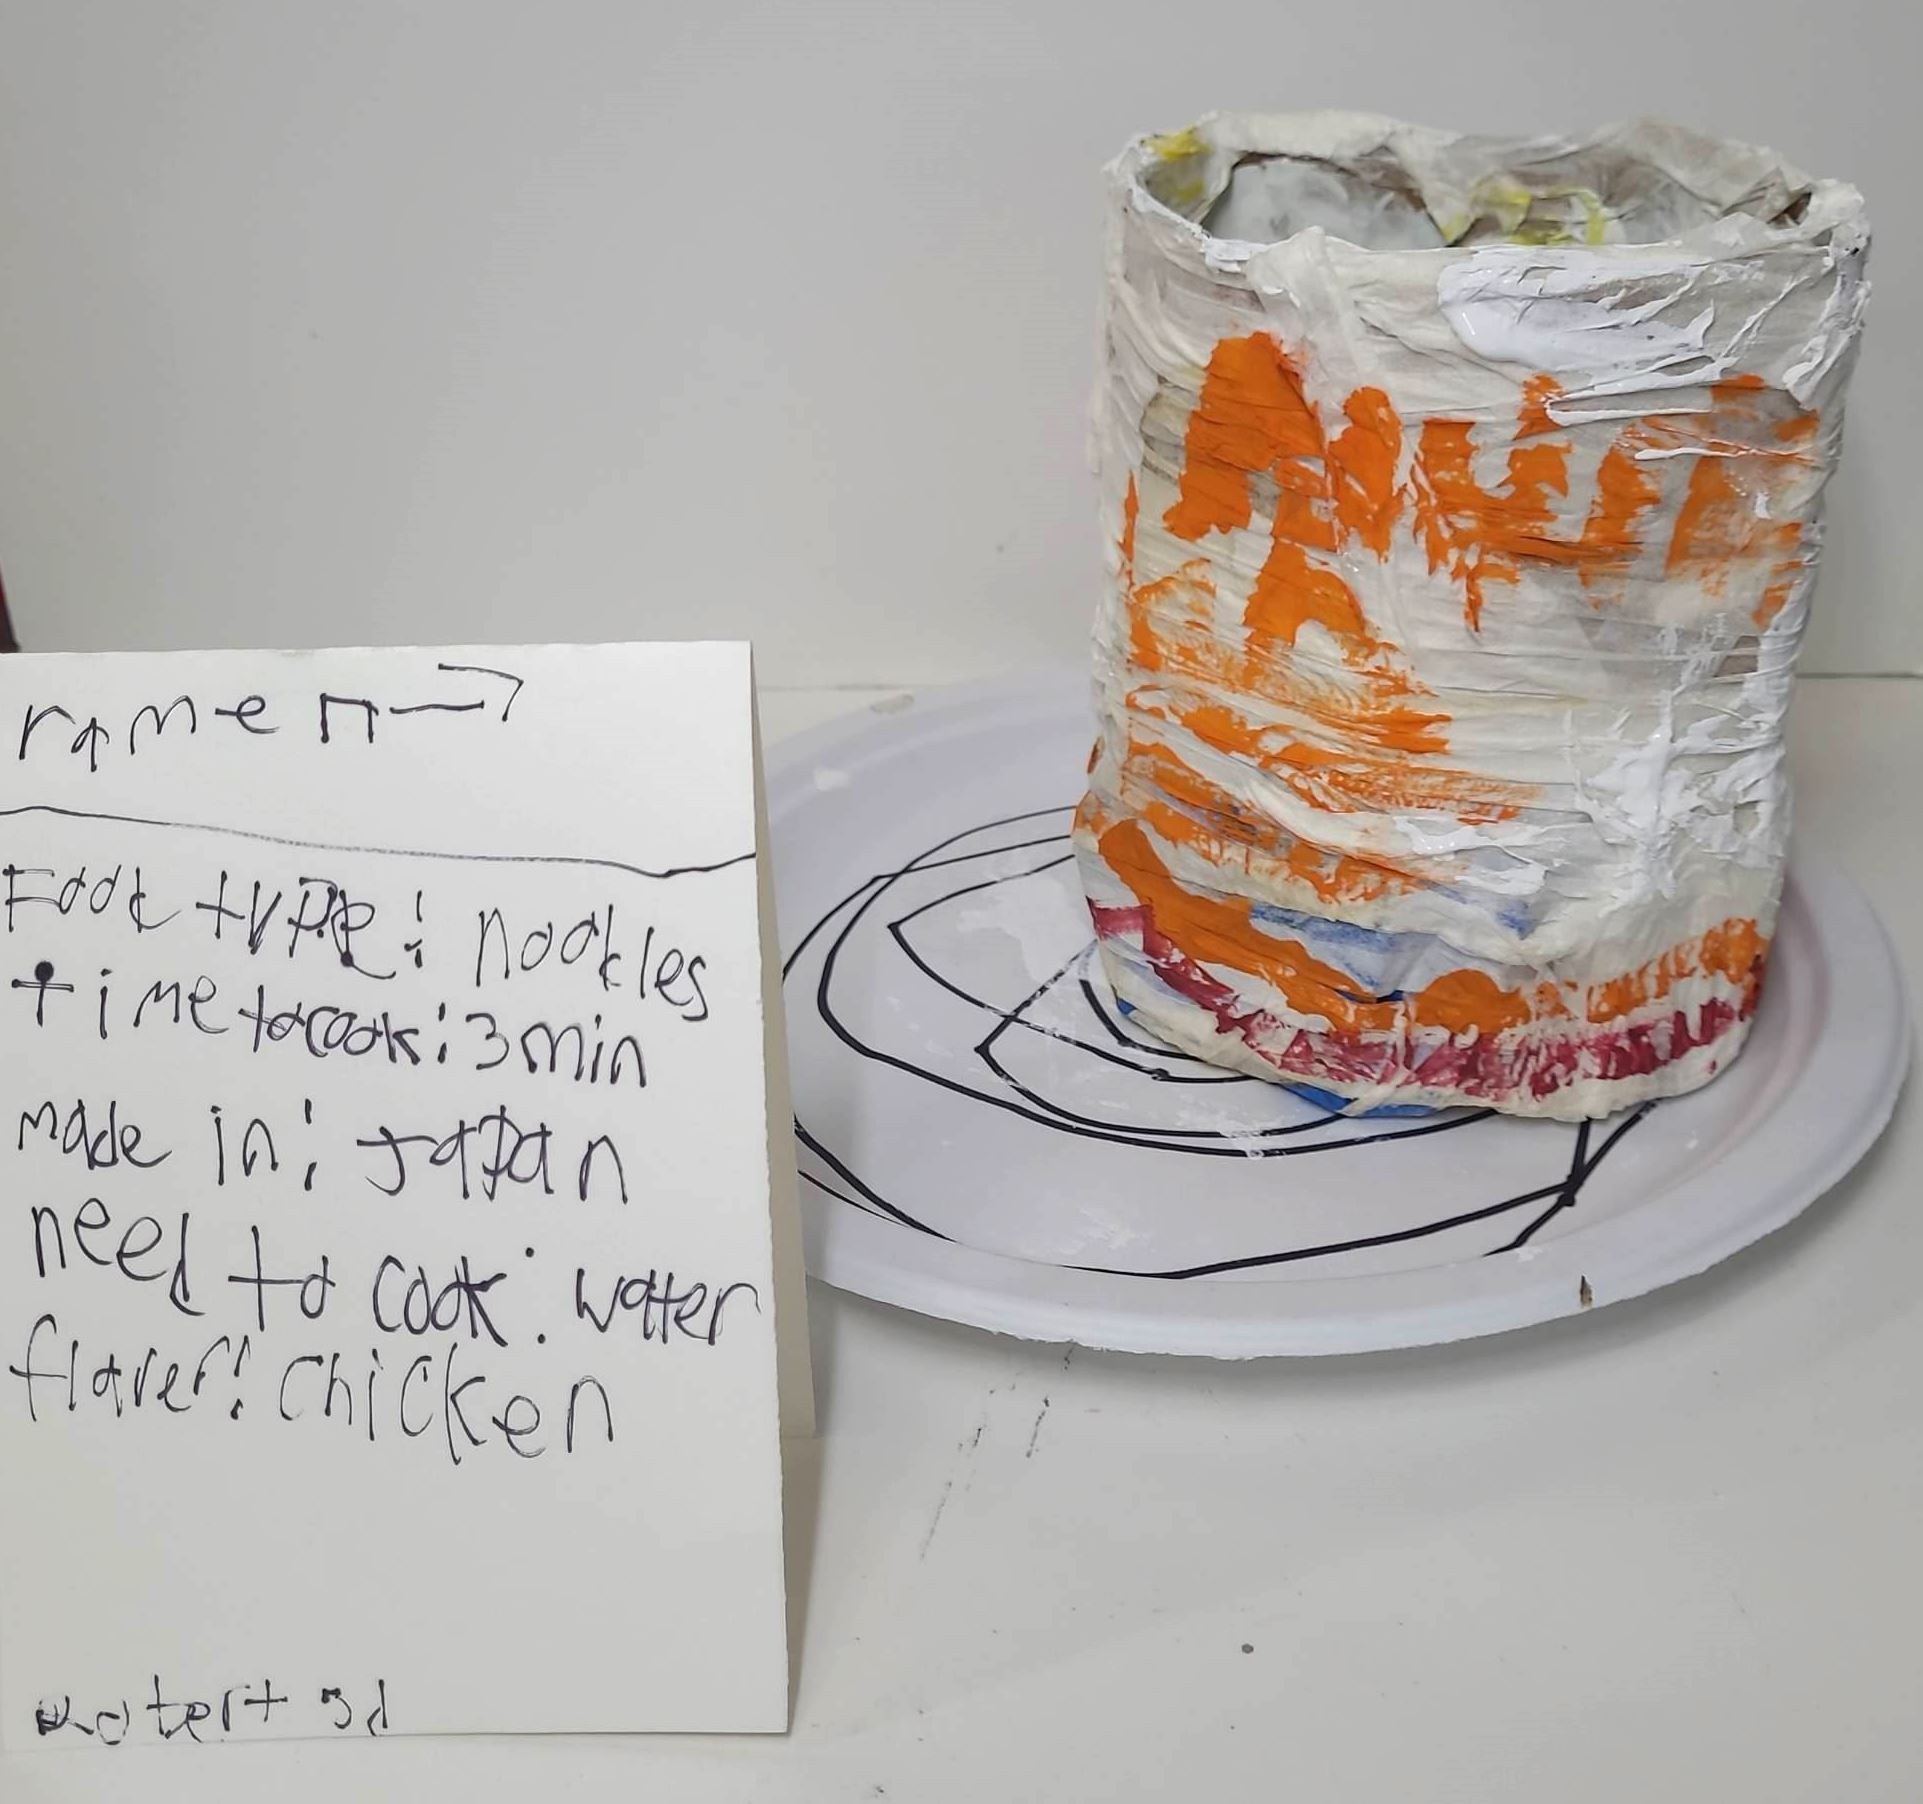 ramen
Food type: noodles
time to cook: 3 min
made in: Japan
need to cook: watter
flaver: chicken